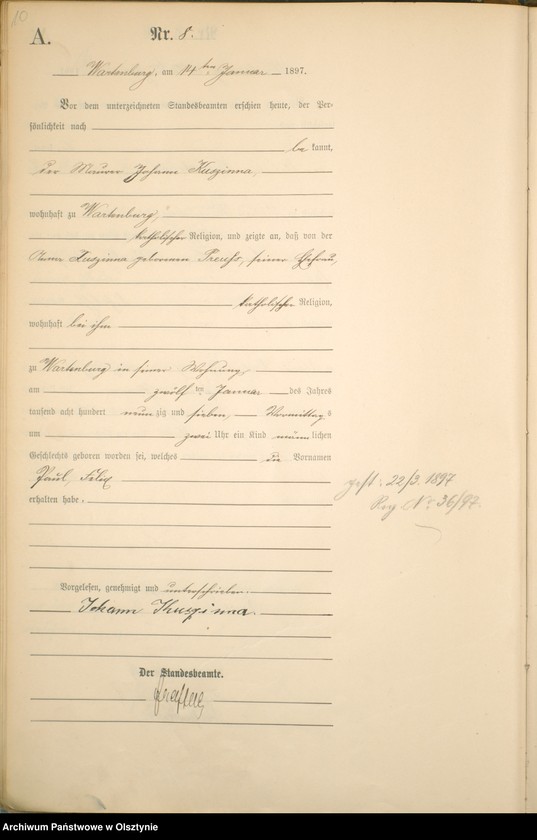 10
A. Nr. 8.
Wartenburg, am 14ten Januar 1897.
Vor dem unterzeichneten Standesbeamten erschien heute, der Per-
sönlichkeit nach
be kannt,
der Maurer Johann Kuszinna,
wohnhaft zu Wartenburg,
katholischer Religion, und zeigte an, daß von der
Anna Kuszinna gebornen Preuß, seiner Ehefrau,
katholischer Religion,
wohnhaft bei ihm
zu Wartenburg in seiner Wohnung,
am zwölften Januar des Jahres
tausend acht hundert neun zig und sieben, Vormittags
um zwei Uhr ein Kind männlichen
Geschlechts geboren worden sei, welches die Vornamen
Paul, Felix
erhalten habe.
gest. 22/3. 1897
Reg No 36/97.
Vorgelesen, genehmigt und unterschrieben.
Johann Kuszinna.
Der Standesbeamte.
Archiwum Państwowe w Olsztynie